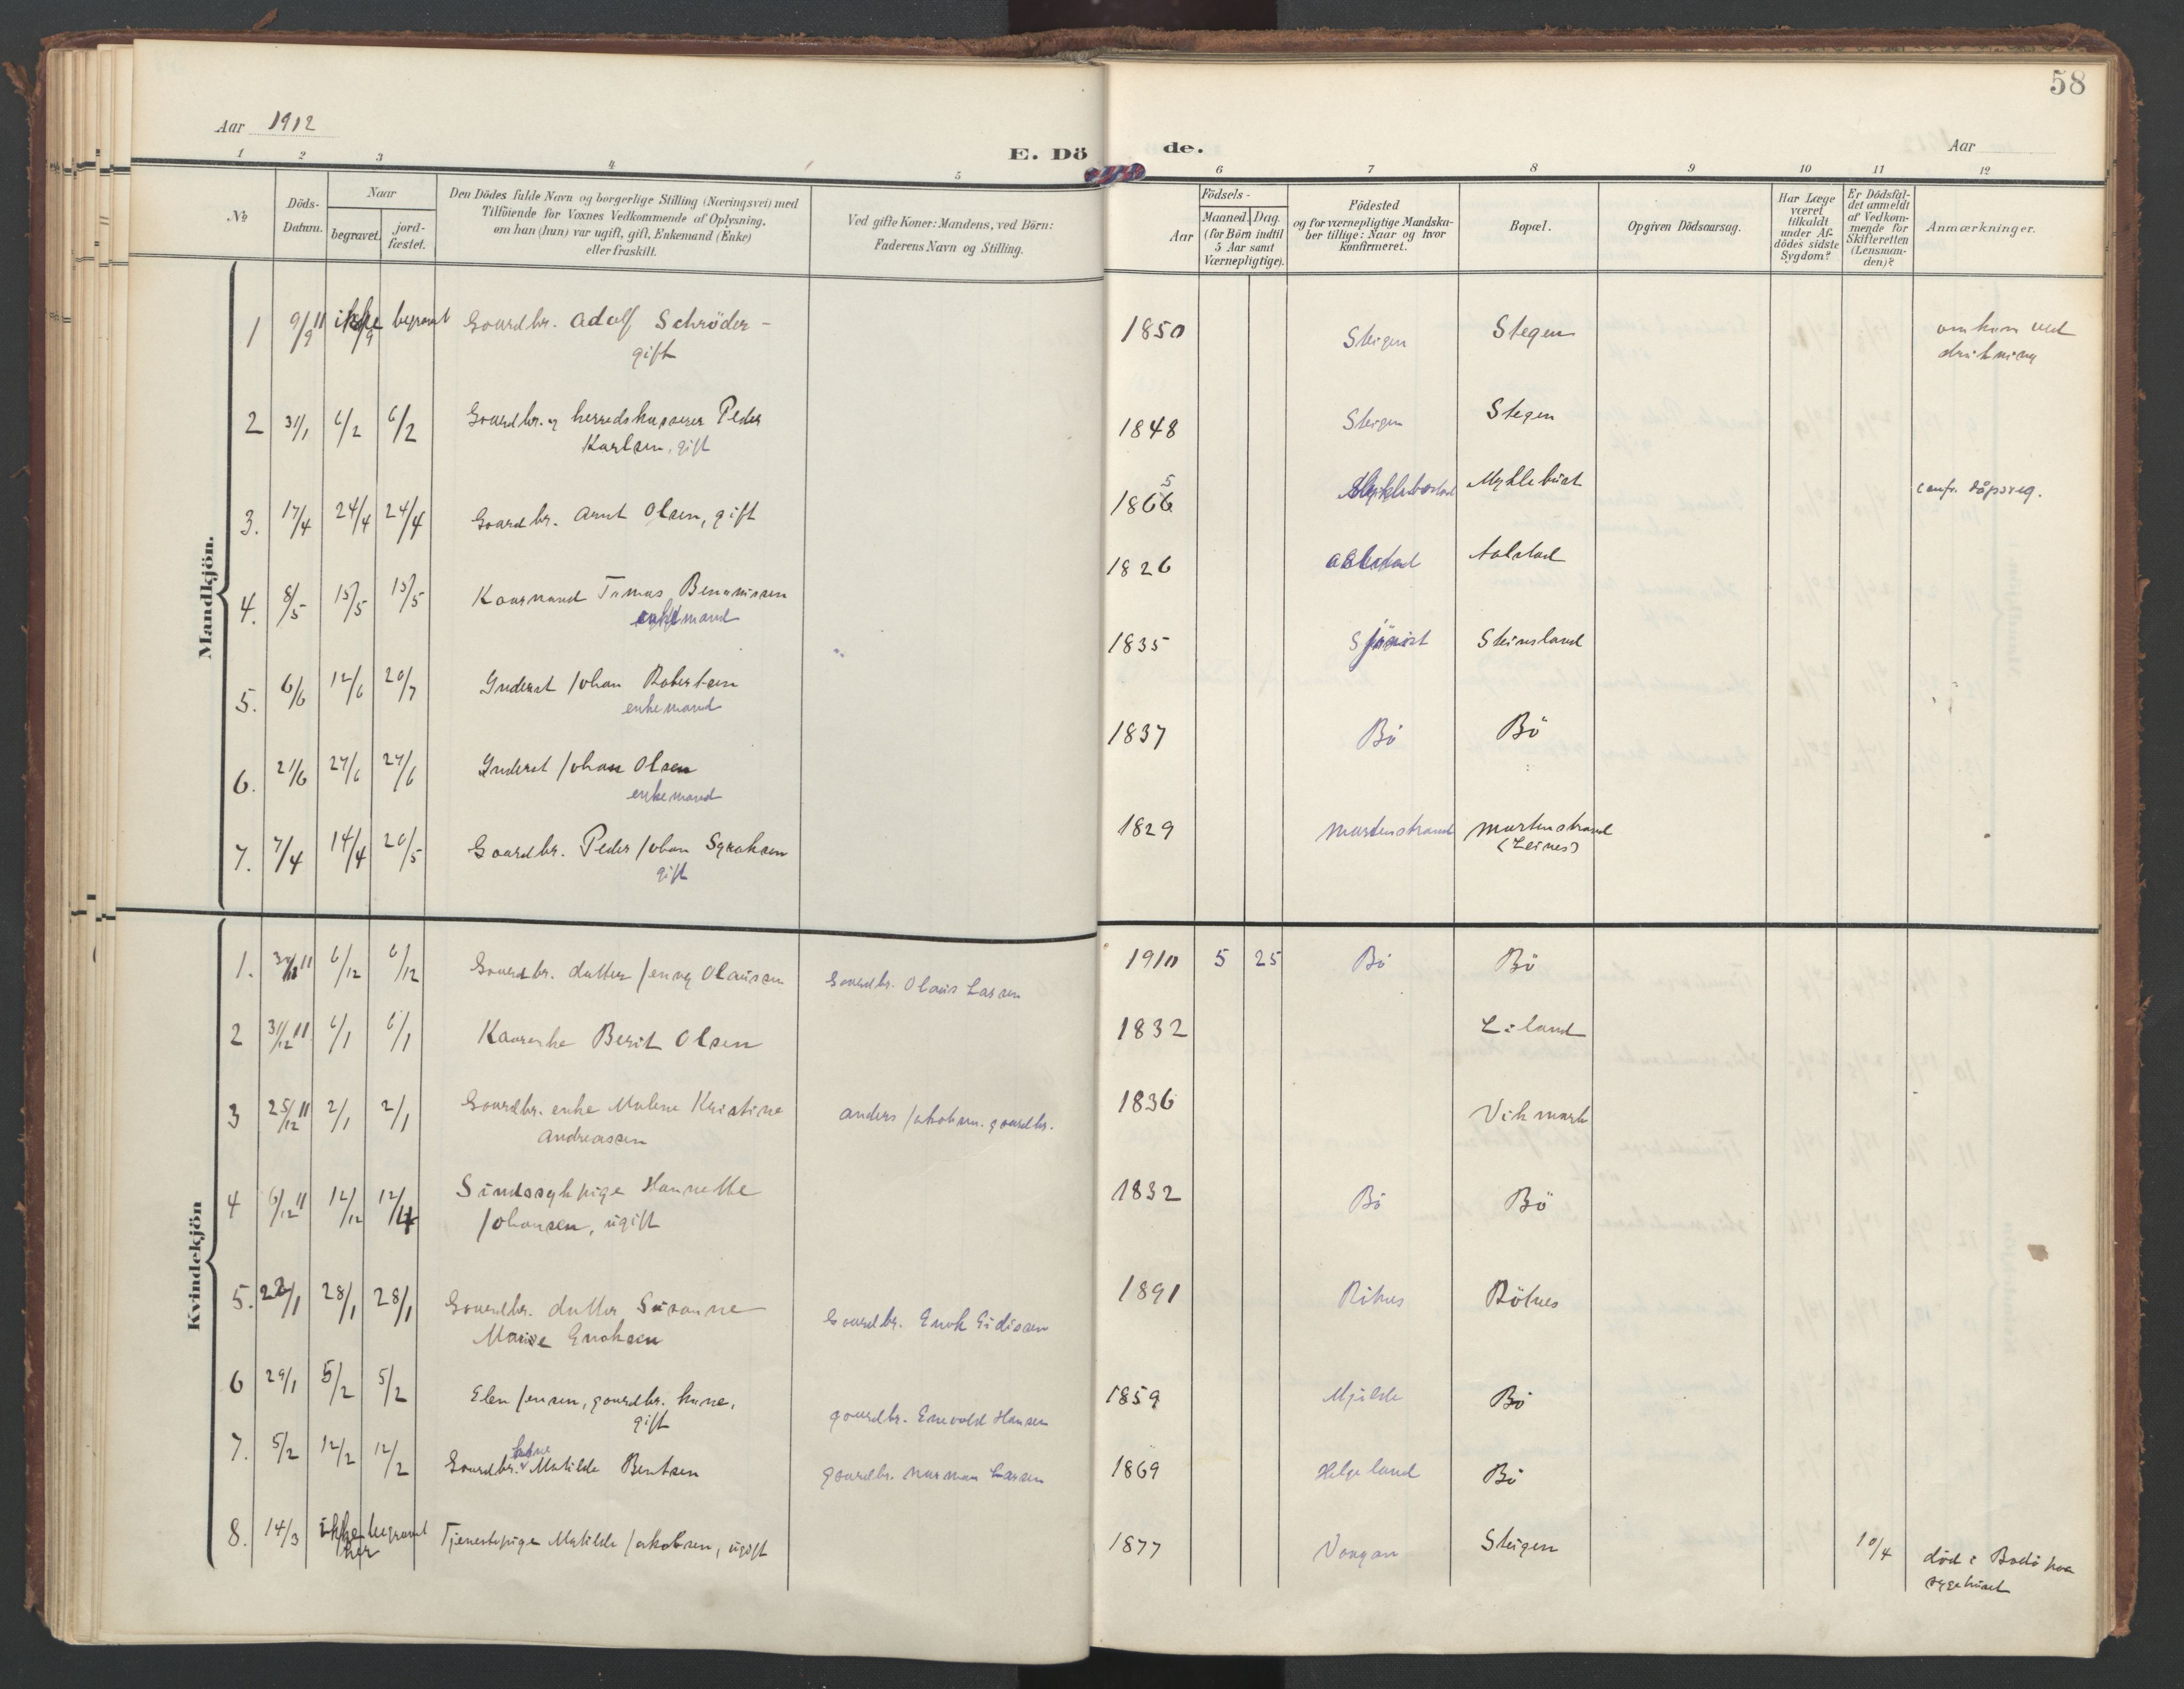 58
Aar 1912
E. Dö de.
Aar
1 2 3 4 5 6 7 8 9 10 11 12
№
Döds-Datum.
Naar
begravet.
jord-fæstet.
Den Dödes fulde Navn og borgerlige Stilling (Næringsvei) med
Tilföiende for Voxnes Vedkommende af Oplysning,
om han (hun) var ugift, gift, Enkemand (Enke)
eller fraskilt.
Ved gifte Koner: Mandens, ved Börn:
Faderens Navn og Stilling.
Födsels-
Aar
Maaned. Dag.
(for Börn indtil
5 Aar samt
Værnepligtige).
Födested
og for værnepligtige Mandska-
ber tillige: Naar og hvor
Konfirmeret.
Bopæl.
Opgiven Dödsaarsag.
Har Læge
været
tilkaldt
under Af-
dödes sidste
Sygdom?
Er Dödsfal-
det anmeldt
af Vedkom-
mende for
Skifteretten
(Lensman-
den)?
Anmærkninger.
Mandkjön.
1 9/9 11 ikke begravet Gaardbr. Adolf Schröder - 1850 Steigen Stegen omkom ved
gift drukning
2 31/1 6/2 6/2 Gaardbr. og herredskasserer Peder 1848 Steigen Stegen
Karlsen, gift
3. 17/4 24/4 24/4 Gaardbr. Arnt Olsen, gift 1866 5 Myklebostad Myklebust confr. dåpsreg.
4. 8/5 15/5 15/5 Kaarmand Tomas Benonissen 1826 Aalstad Aalstad
enkemand
5. 6/6 12/6 20/7 Inderst Johan Robertsen 1835 Steinsland
enkemand
6. 21/6 27/6 27/6 Inderst Johan Olsen 1837 Bö Bö
enkemand
7. 7/4 14/4 20/5 Gaardbr. Peder Johan Syvaksen 1829 Martenstrand Martenstrand
gift (Leines)
Kvindekjön
1. 11 6/12 6/12 Gaardbr. datter Jenny Olaussen Gaardbr. Olaus Larsen 1910 5 25 Bö Bö
2 31/12 11 6/1 6/1 Kaarenke Berit Olsen 1832 Leland
3 25/12 11 2/1 2/1 Gaardbr. enke Malene Kristine Anders Jakobsen. gaardbr. 1836 Vikmark
Andreassen
4 6/12 11 12/12 12/12 Sindssyk pige Hannette 1832 Bö Bö
Johansen, ugift
5. 22/1 28/1 28/1 Gaardbr. datter Susanne Gaardbr. Enok Eidissen 1891 Bötnes Bötnes
Marie Enoksen
6 29/1 5/2 5/2 Elen Jensen, gaardbr. kone, gaardbr. Enevold Hansen 1859 Mjelde Bö
gift
7. 5/2 12/2 12/2 Gaardbr. kone Matilde Bentsen gaardbr. Norman Larsen 1869 Helgeland Bö
8. 14/3 ikke begravet Tjenestepige Matilde Jakobsen, ugift 1877 Vaagan Steigen 10/4 död i Bodö paa
her sygehuset